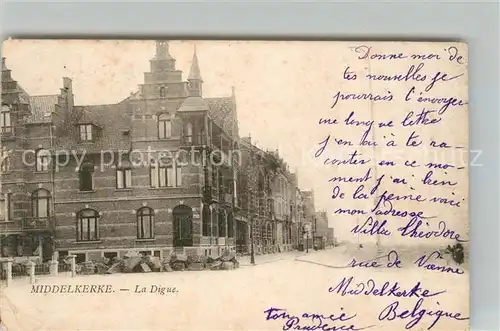 Donne moi de
tes nouvelles je
pourrais t'envoyer
une longue lettre
j'en ai à te ra-
conter en ce mo-
ment j'ai bien
de la peine voici
mon adresse
Villa Théodore
rue de Vienne
Middelkerke
Belgique
ton amie
Prudence
MIDDELKERKE. — La Digue.